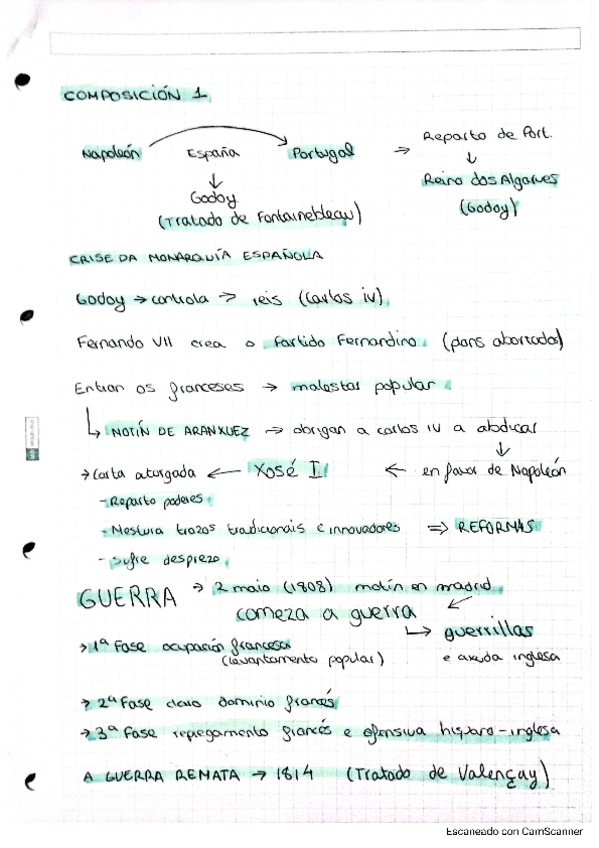 COMPOSICIÓN 1
Napoleón España Portugal → Reparto de Port.
↓ ↓
Godoy Reino dos Algarves
(Tratado de Fontainebleau) (Godoy)
CRISE DA MONARQUÍA ESPAÑOLA
Godoy → controla → reis (Carlos iv)
Fernando VII crea o Partido Fernandino. (plans abortados)
Entran os franceses → malestar popular.
↳ MOTÍN DE ARANXUEZ → obrigan a carlos IV a abdicar
↓
→ Carta otorgada ← Xosé I ← en favor de Napoleón
- Reparto poderes
- Mestura trazos tradicionais e innovadores ⇒ REFORMAS
- Sufre desprezo.
GUERRA → 2 maio (1808) motín en madrid
comeza a guerra ↳ guerrillas
→ 1ª Fase ocupación francesa e axuda inglesa
(levantamento popular)
→ 2ª Fase claro dominio francés
→ 3ª Fase repregamento francés e ofensiva hispano-inglesa
A GUERRA REMATA → 1814 (Tratado de Valençay)
Escaneado con CamScanner